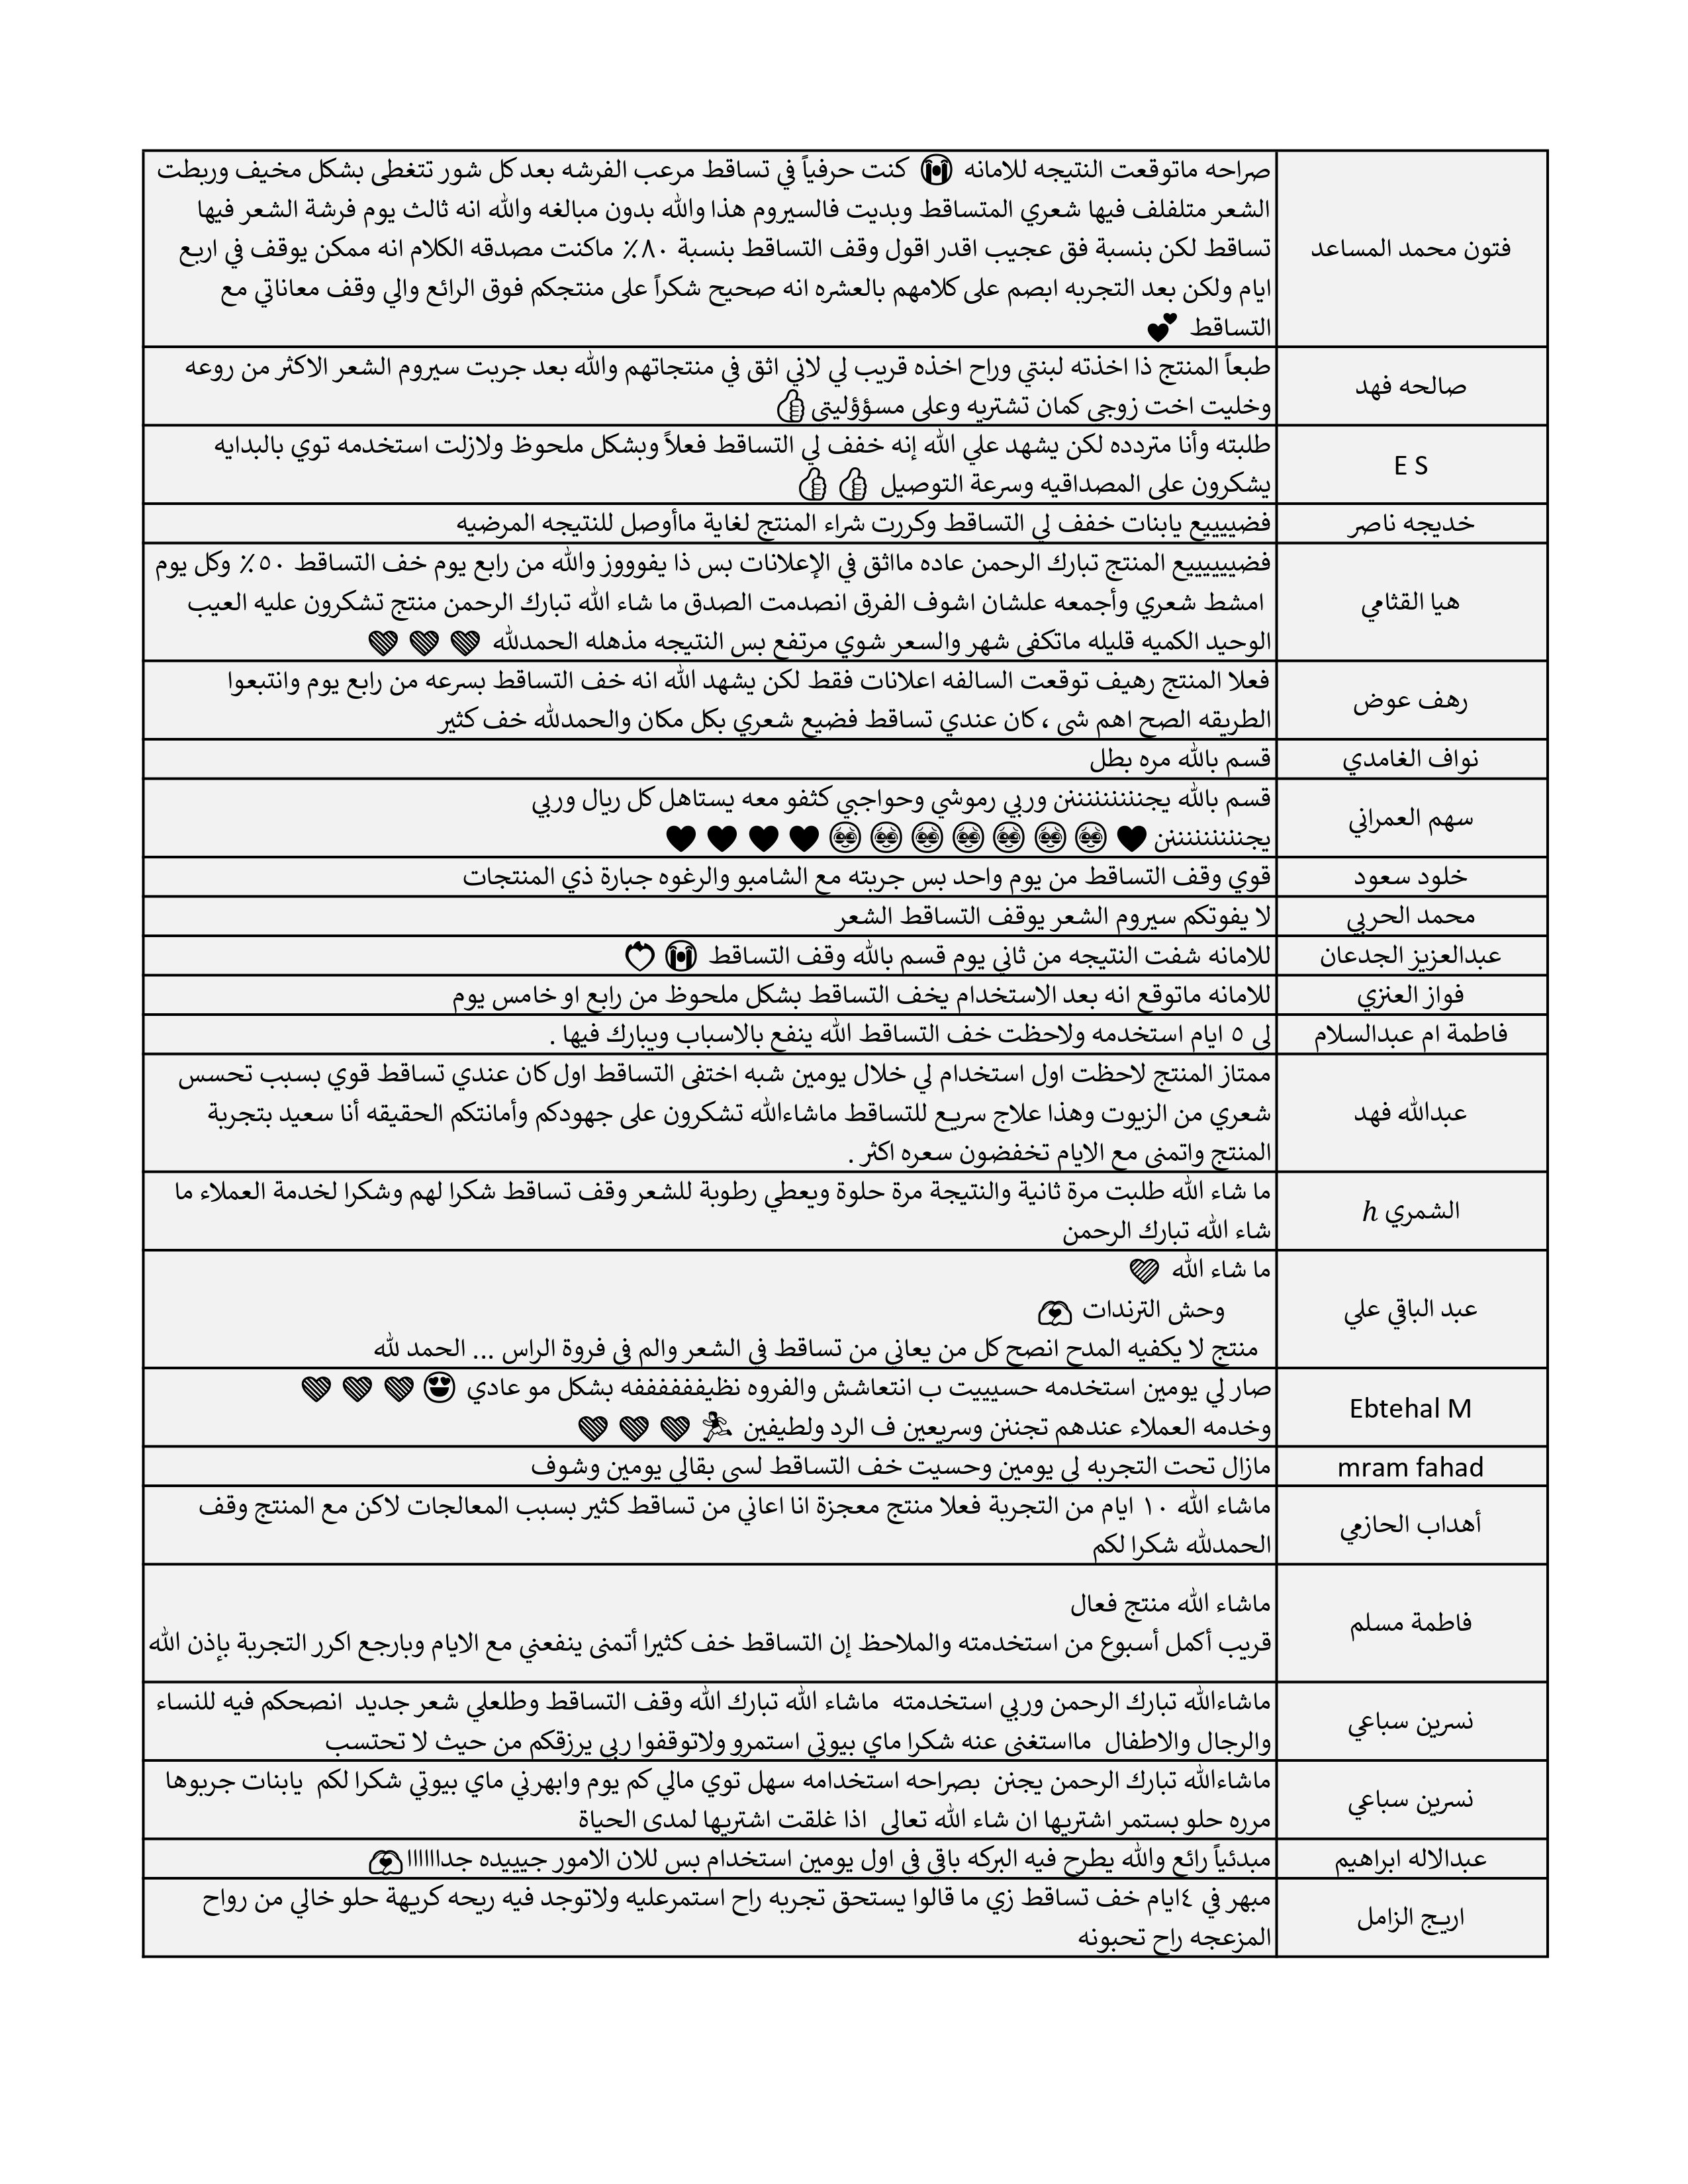 فتون محمد المساعد
صراحه ماتوقعت النتيجه للامانه 😭 كنت حرفياً في تساقط مرعب الفرشه بعد كل شور تتغطى بشكل مخيف وربطت
الشعر متلفلف فيها شعري المتساقط وبديت فالسيروم هذا والله بدون مبالغه والله انه ثالث يوم فرشة الشعر فيها
تساقط لكن بنسبة فق عجيب اقدر اقول وقف التساقط بنسبة ٨٠٪ ماكنت مصدقه الكلام انه ممكن يوقف في اربع
ايام ولكن بعد التجربه ابصم على كلامهم بالعشره انه صحيح شكراً على منتجكم فوق الرائع والي وقف معاناتي مع
التساقط 💕
صالحه فهد
طبعاً المنتج ذا اخذته لبنتي وراح اخذه قريب لي لاني اثق في منتجاتهم والله بعد جربت سيروم الشعر الاكثر من روعه
وخليت اخت زوجي كمان تشتريه وعلى مسؤؤليتي👍
E S
طلبته وأنا متردده لكن يشهد علي الله إنه خفف لي التساقط فعلاً وبشكل ملحوظ ولازلت استخدمه توي بالبدايه
يشكرون على المصداقيه وسرعة التوصيل 👍 👍
خديجه ناصر
فضيييييع يابنات خفف لي التساقط وكررت شراء المنتج لغاية ماأوصل للنتيجه المرضيه
هيا القثامي
فضيييييييع المنتج تبارك الرحمن عاده مااثق في الإعلانات بس ذا يفوووز والله من رابع يوم خف التساقط ٥٠٪ وكل يوم
امشط شعري وأجمعه علشان اشوف الفرق انصدمت الصدق ما شاء الله تبارك الرحمن منتج تشكرون عليه العيب
الوحيد الكميه قليله ماتكفي شهر والسعر شوي مرتفع بس النتيجه مذهله الحمدلله 💜 💜 💜
رهف عوض
فعلا المنتج رهيف توقعت السالفه اعلانات فقط لكن يشهد الله انه خف التساقط بسرعه من رابع يوم وانتبعوا
الطريقه الصح اهم شي ، كان عندي تساقط فضيع شعري بكل مكان والحمدلله خف كثير
نواف الغامدي
قسم بالله مره بطل
سهم العمراني
قسم بالله يجننننننننننن وربي رموشي وحواجبي كثفو معه يستاهل كل ريال وربي
يجننننننننننن ♥ 🥹 🥹 🥹 🥹 🥹 🥹 🥹 ♥ ♥ ♥ ♥
خلود سعود
قوي وقف التساقط من يوم واحد بس جربته مع الشامبو والرغوه جبارة ذي المنتجات
محمد الحربي
لا يفوتكم سيروم الشعر يوقف التساقط الشعر
عبدالعزيز الجدعان
للامانه شفت النتيجه من ثاني يوم قسم بالله وقف التساقط 😭
فواز العنزي
للامانه ماتوقع انه بعد الاستخدام يخف التساقط بشكل ملحوظ من رابع او خامس يوم
فاطمة ام عبدالسلام
لي ٥ ايام استخدمه ولاحظت خف التساقط الله ينفع بالاسباب ويبارك فيها .
عبدالله فهد
ممتاز المنتج لاحظت اول استخدام لي خلال يومين شبه اختفى التساقط اول كان عندي تساقط قوي بسبب تحسس
شعري من الزيوت وهذا علاج سريع للتساقط ماشاءالله تشكرون على جهودكم وأمانتكم الحقيقه أنا سعيد بتجربة
المنتج واتمنى مع الايام تخفضون سعره اكثر .
الشمري h
ما شاء الله طلبت مرة ثانية والنتيجة مرة حلوة ويعطي رطوبة للشعر وقف تساقط شكرا لهم وشكرا لخدمة العملاء ما
شاء الله تبارك الرحمن
عبد الباقي علي
ما شاء الله 💜
وحش الترندات 🫶
منتج لا يكفيه المدح انصح كل من يعاني من تساقط في الشعر والم في فروة الراس ... الحمد لله
Ebtehal M
صار لي يومين استخدمه حسيييت ب انتعاشش والفروه نظيففففففه بشكل مو عادي 😍 💜 💜 💜
وخدمه العملاء عندهم تجننن وسريعين ف الرد ولطيفين 🏃 💜 💜 💜
mram fahad
مازال تحت التجربه لي يومين وحسيت خف التساقط لسى بقالي يومين وشوف
أهداب الحازمي
ماشاء الله ١٠ ايام من التجربة فعلا منتج معجزة انا اعاني من تساقط كثير بسبب المعالجات لاكن مع المنتج وقف
الحمدلله شكرا لكم
فاطمة مسلم
ماشاء الله منتج فعال
قريب أكمل أسبوع من استخدمته والملاحظ إن التساقط خف كثيرا أتمنى ينفعني مع الايام وبارجع اكرر التجربة بإذن الله
نسرين سباعي
ماشاءالله تبارك الرحمن وربي استخدمته ماشاء الله تبارك الله وقف التساقط وطلعلي شعر جديد انصحكم فيه للنساء
والرجال والاطفال مااستغنى عنه شكرا ماي بيوتي استمرو ولاتوقفوا ربي يرزقكم من حيث لا تحتسب
نسرين سباعي
ماشاءالله تبارك الرحمن يجنن بصراحه استخدامه سهل توي مالي كم يوم وابهرني ماي بيوتي شكرا لكم يابنات جربوها
مرره حلو بستمر اشتريها ان شاء الله تعالى اذا غلقت اشتريها لمدى الحياة
عبدالاله ابراهيم
مبدئياً رائع والله يطرح فيه البركه باقي في اول يومين استخدام بس للان الامور جيييده جداااااا🫶
اريج الزامل
مبهر في ٤ايام خف تساقط زي ما قالوا يستحق تجربه راح استمرعليه ولاتوجد فيه ريحه كريهة حلو خالي من رواح
المزعجه راح تحبونه